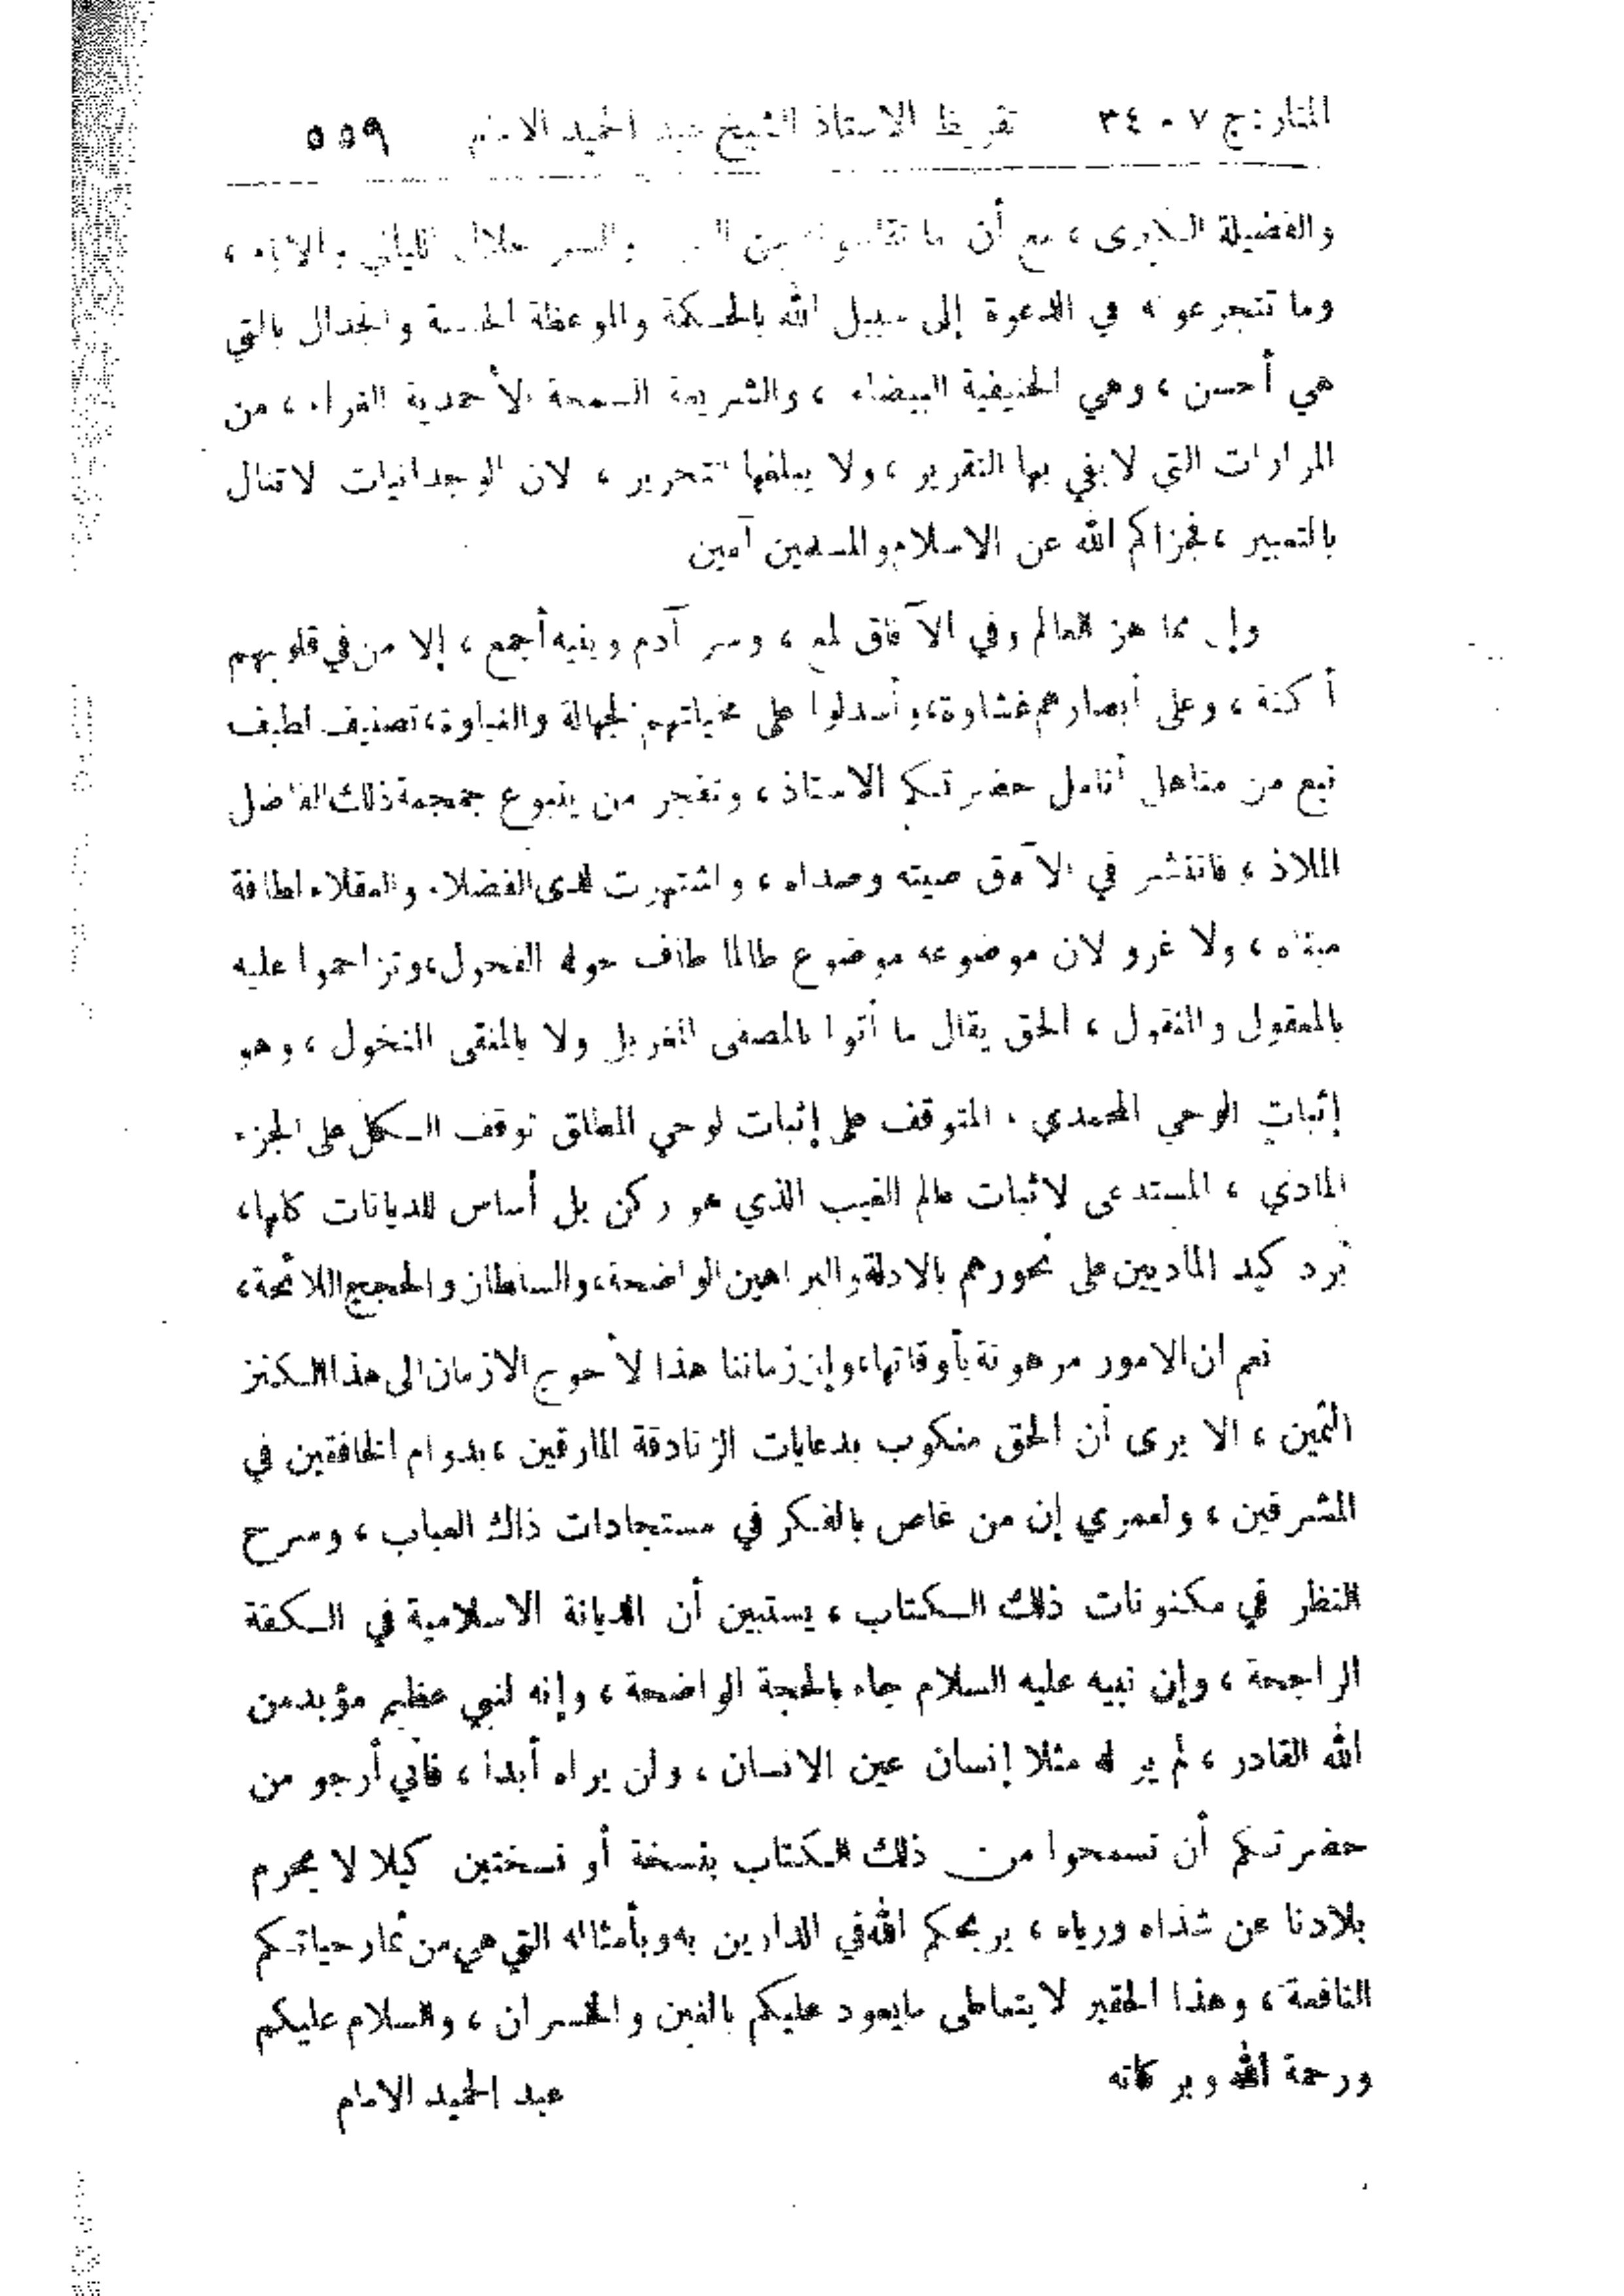 المنار: ج ٧ م ٣٤ تقريظ الاستاذ الشيخ عبد الحميد الامام ٥٥٩
والفضيلة الكبرى ، مع أن ما من خلال الليالي والايام ،
وما تتجرعونه في الدعوة إلى سبيل الله بالحكمة والموعظة الحسنة والجدال بالتي
هي أحسن ، وهي الحنيفية البيضاء ، والشريعة السمحة الأحمدية الغراء ، من
المرارات التي لا يفي بها التقرير ، ولا يبلغها التحرير ، لان الوجدانيات لا تنال
بالتعبير ، فجزاكم الله عن الاسلام والمسلمين آمين
وإن مما هز العالم وفي الآفاق لمع ، وسر آدم وبنيه أجمع ، إلا من في قلوبهم
أكنة ، وعلى أبصارهم غشاوة، وأسدلوا على الجهالة والغباوة، تصنيف لطيف
نبع من مناهل أنامل حضرتكم الاستاذ ، وتفجر من ينبوع جمجمة ذلك الفاضل
الملاذ ، فانتشر في الآفاق صيته وصداه ، واشتهرت لدى الفضلاء والعقلاء لطافة
مبناه ، ولا غرو لان موضوعه موضوع طالما طاف حوله الفحول، وتزاحموا عليه
بالمعقول والمنقول ، الحق يقال ما أتوا بالمصفى المغربل ولا بالمنقى المنخول ، وهو
إثبات الوحي المحمدي ، المتوقف على إثبات الوحي المطلق توقف الكل على الجزء
المادي ، المستدعى لاثبات عالم الغيب الذي هو ركن بل أساس للديانات كلها،
برد كيد الماديين على نحورهم بالادلة والبراهين الواضحة، والسلطان والحجج اللائحة،
نعم ان الامور مرهونة بأوقاتها، وإن زماننا هذا لأحوج الازمان الى هذا الكنز
الثمين ، الا يرى أن الحق منكوب بدعايات الزنادقة المارقين ، بدوام الخافقين في
المشرقين ، ولعمري إن من غاص بالفكر في مستجادات ذاك العباب ، وسرح
النظر في مكنونات ذلك الكتاب ، يستبين أن الديانة الاسلامية في الكفة
الراجحة ، وإن نبيه عليه السلام جاء بالحجة الواضحة ، وإنه لنبي عظيم مؤيد من
الله القادر ، لم ير له مثلا إنسان عين الانسان ، ولن يراه أبدا ، فاني أرجو من
حضرتكم أن تسمحوا من ذلك الكتاب بنسخة أو نسختين كيلا لا يحرم
بلادنا عن شذاه ورياه ، يربحكم الله في الدارين به وبأمثاله التي هي من ثمار حياتكم
النافعة ، وهذا الحقير لا يتعاطى ما يعود عليكم بالغبن والخسران ، والسلام عليكم
ورحمة الله وبركاته عبد الحميد الامام